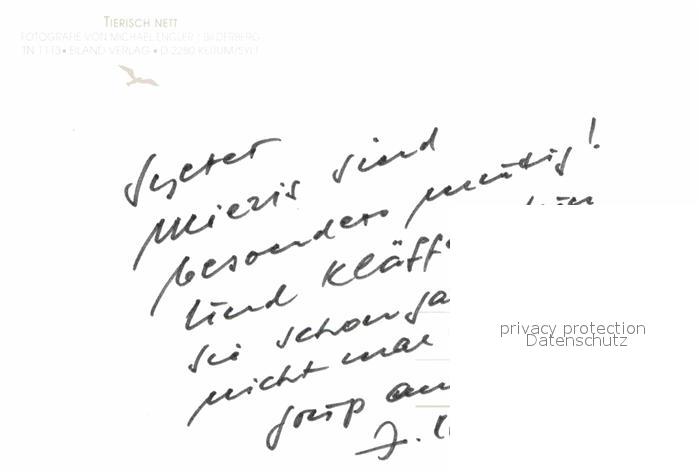 TIERISCH NETT
FOTOGRAFIE VON MICHAEL ENGLER / BILDERBERG
TN 1113 • EILAND VERLAG • D 2280 KEITUM/SYLT
Sylter
Miezis sind
besonders mutig!
Und kläff
sie schon ga
nicht mal
Gruß an
J.
privacy protection
Datenschutz